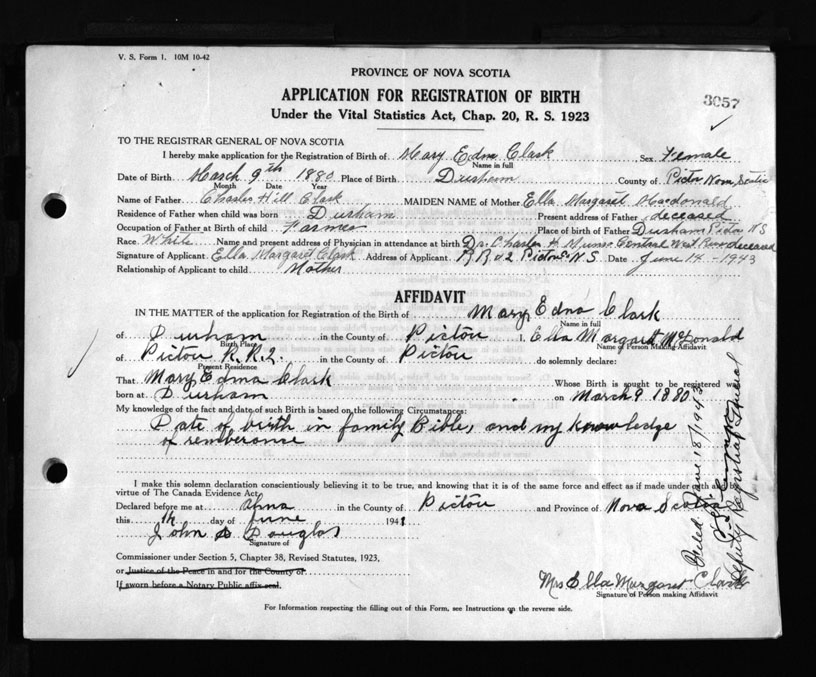 V. S. Form 1. 10M 10-42
PROVINCE OF NOVA SCOTIA
3057
APPLICATION FOR REGISTRATION OF BIRTH
Under the Vital Statistics Act, Chap. 20, R. S. 1923
TO THE REGISTRAR GENERAL OF NOVA SCOTIA
I hereby make application for the Registration of Birth of Mary Edna Clark Sex Female
Name in full
Date of Birth March 9th 1880 Place of Birth Durham County of Pictou Nova Scotia
Month Date Year
Name of Father Charles Hill Clark MAIDEN NAME of Mother Ella Margaret Macdonald
Residence of Father when child was born Durham Present address of Father deceased
Occupation of Father at Birth of child Farmer Place of birth of Father Durham Pictou N S
Race White Name and present address of Physician in attendance at birth Dr Charles H Central West River deceased
Signature of Applicant Ella Margaret Clark Address of Applicant R R #2 Pictou N.S. Date June 14 - 1943
Relationship of Applicant to child Mother
AFFIDAVIT
IN THE MATTER of the application for Registration of the Birth of Mary Edna Clark
Name in full
of Durham in the County of Pictou I, Ella Margaret McDonald
Birth Place Name of Person Making Affidavit
of Pictou R.R.2. in the County of Pictou do solemnly declare:
Present Residence
That Mary Edna Clark Whose Birth is sought to be registered was
born at Durham on March 9 1880
My knowledge of the fact and date of such Birth is based on the following Circumstances:
Date of birth in family Bible, and my knowledge
of remberance
I make this solemn declaration conscientiously believing it to be true, and knowing that it is of the same force and effect as if made under oath and by
virtue of The Canada Evidence Act.
Declared before me at in the County of Pictou and Province of Nova Scotia
this 14 day of June 1943
John D Douglas
Signature of
Commissioner under Section 5, Chapter 38, Revised Statutes, 1923,
or Justice of the Peace in and for the County of
If sworn before a Notary Public affix seal.
Mrs Ella Margaret Clark
Signature of Person making Affidavit
For Information respecting the filling out of this Form, see Instructions on the reverse side.
Filed June 18/1943
Deputy Registrar General